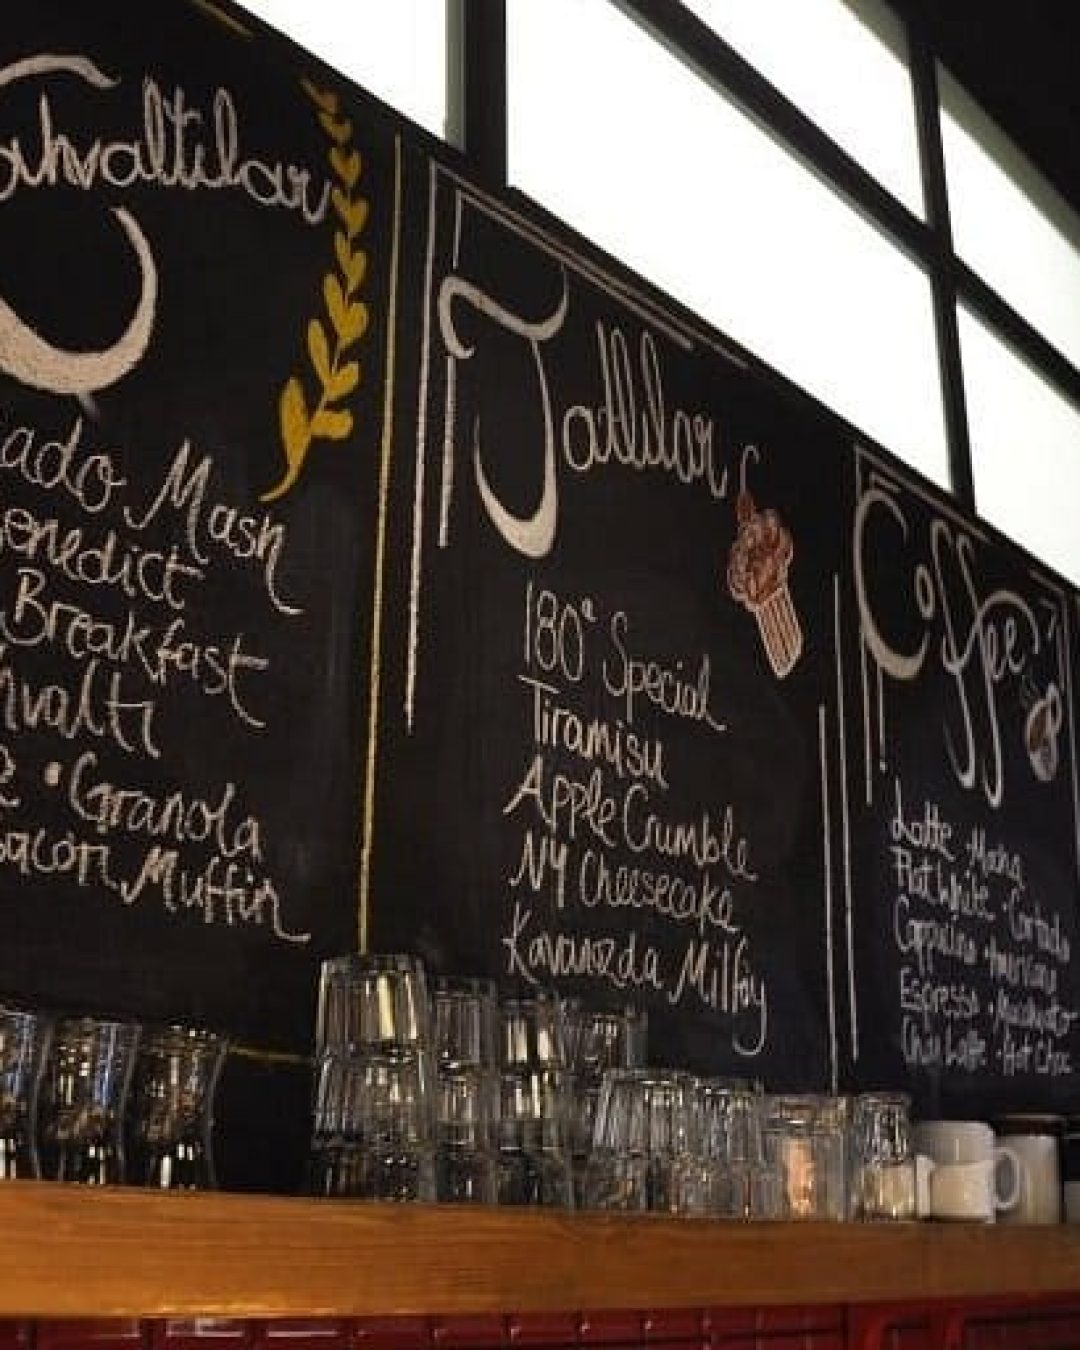 ahvaltılar
ado Mash
enedict
Breakfast
hvaltı
& • Granola
Bacon Muffin
Tatlılar
180° Special
Tiramisu
Apple Crumble
NY Cheesecake
Kavanozda Milföy
Coffee
Latte • Mocha
Flat White • Cortado
Cappucino • Americano
Espresso • Macchiato
Chai Latte • Hot Choc